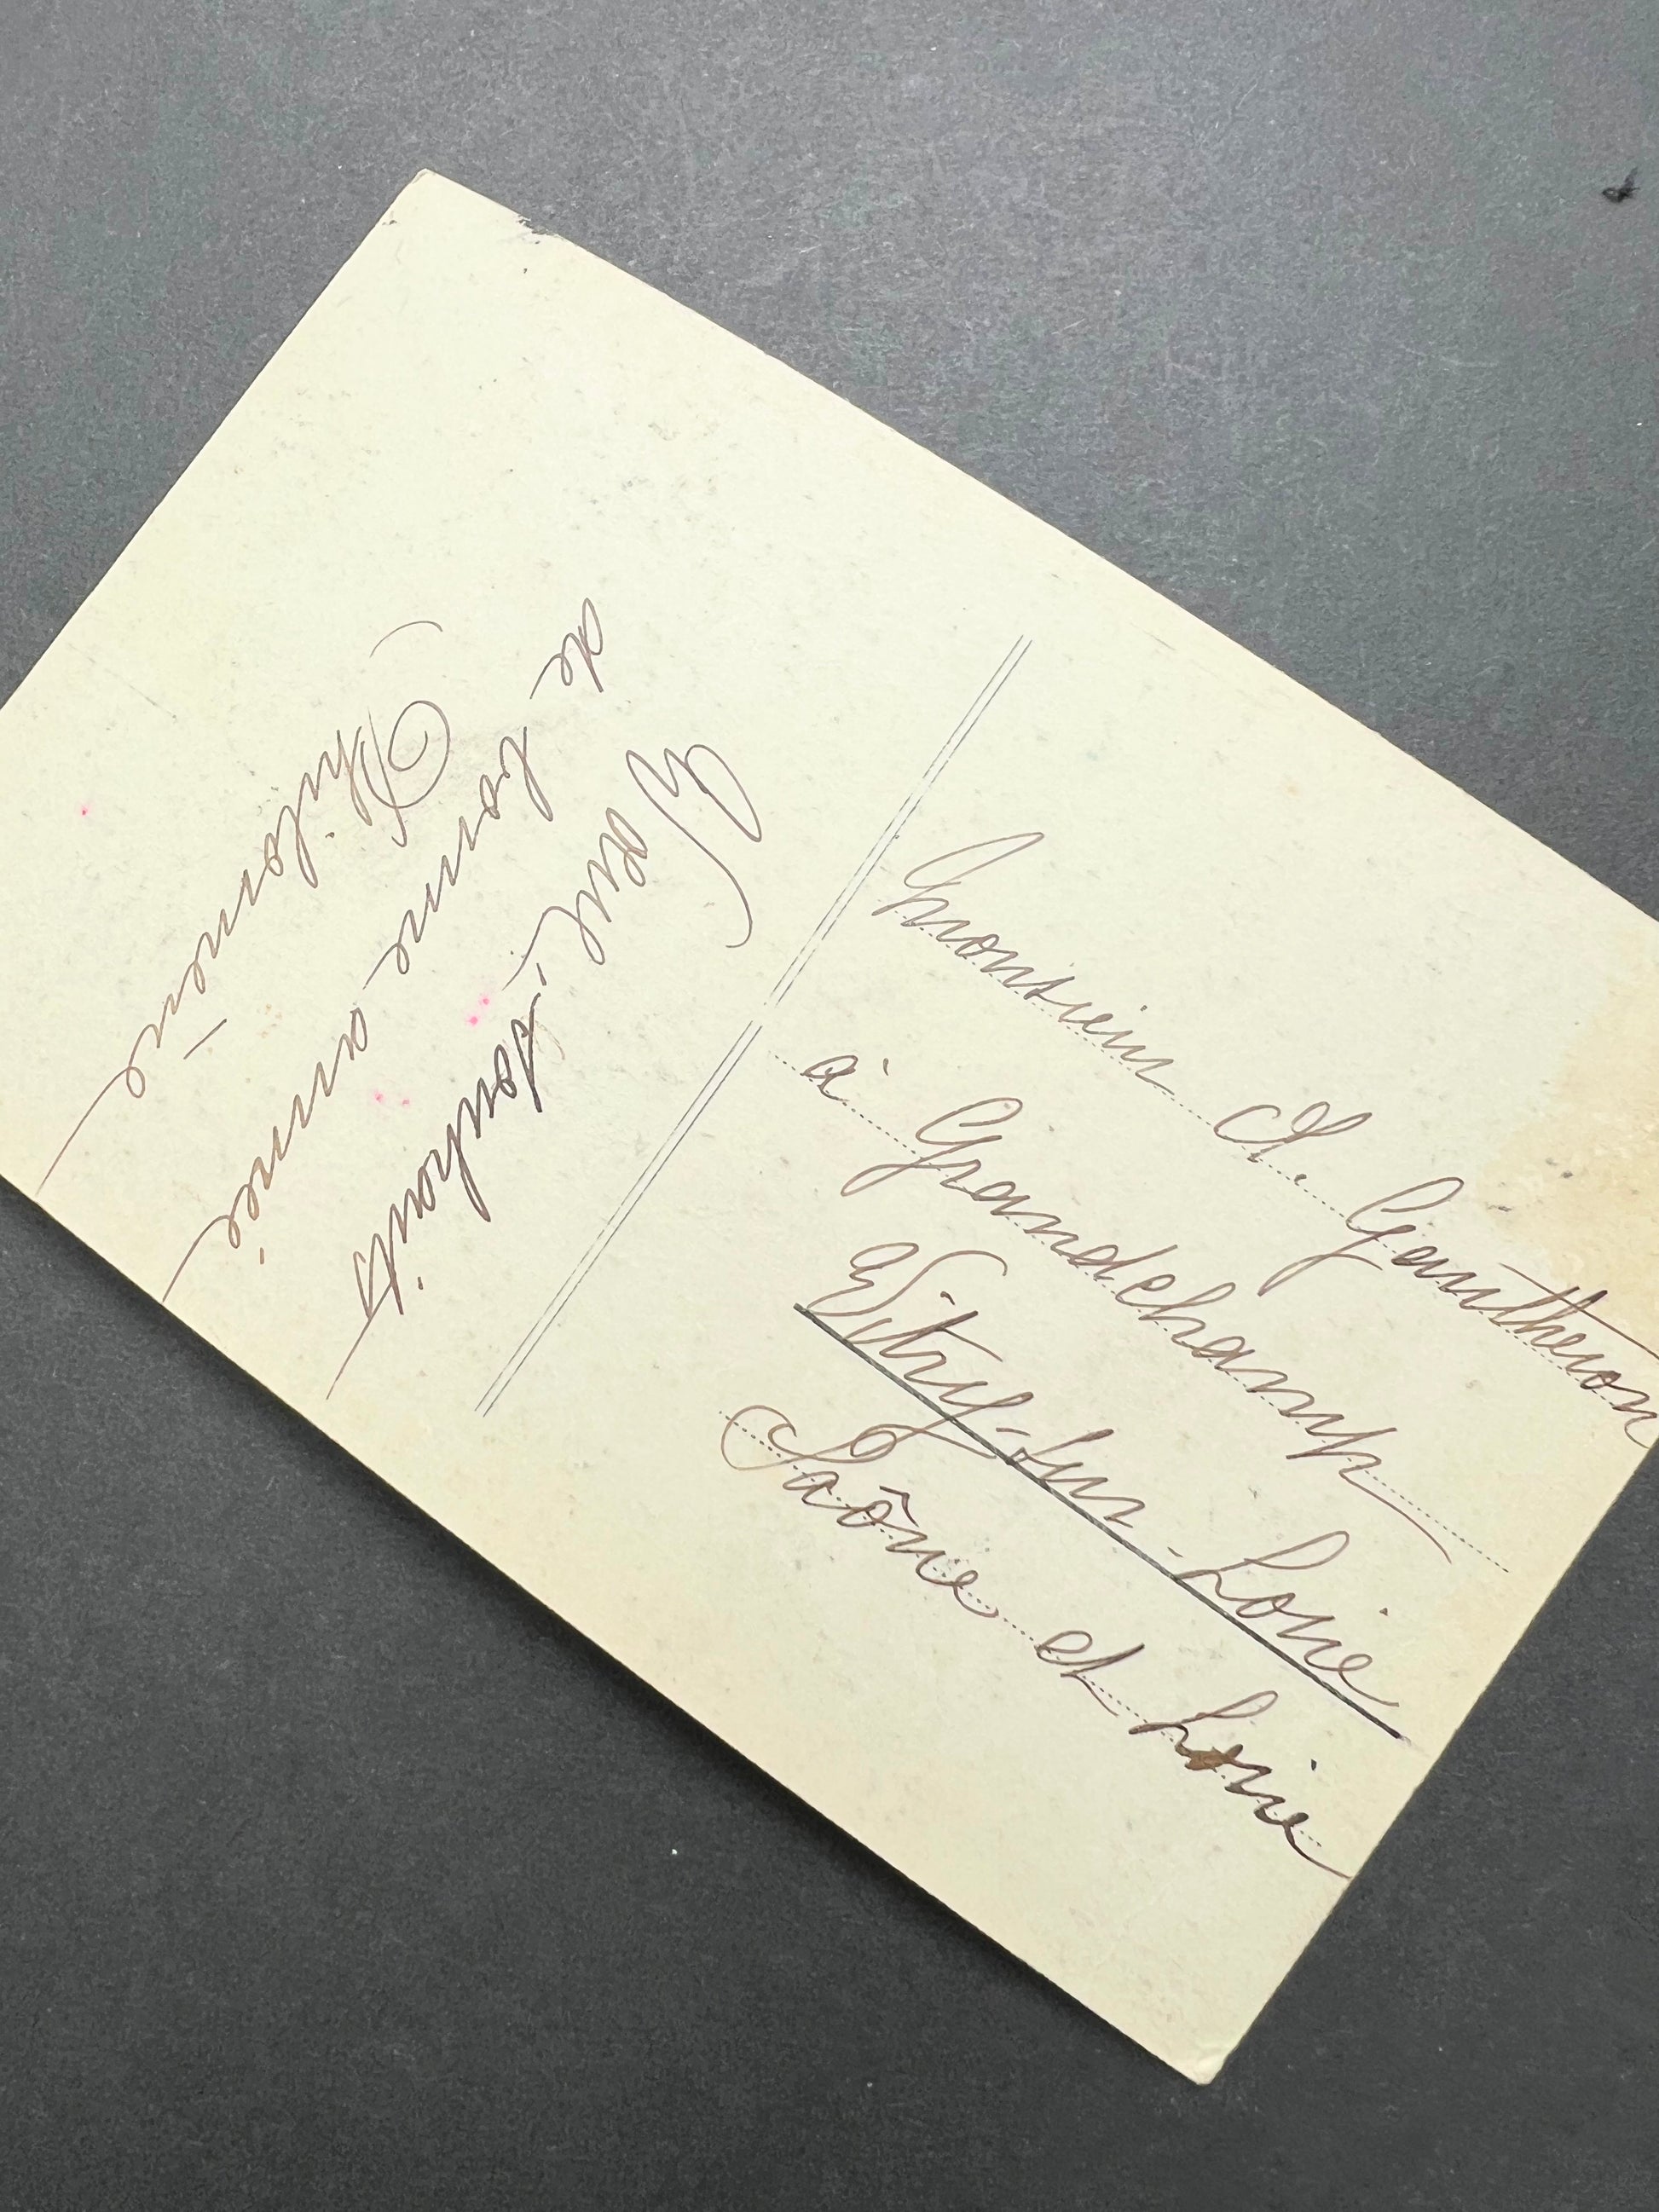 Vœux et souhaits
de bonne année
Philomène
Monsieur Cl. Gautheron
à Grandchamp
Vitry-sur-Loire
Saône et Loire